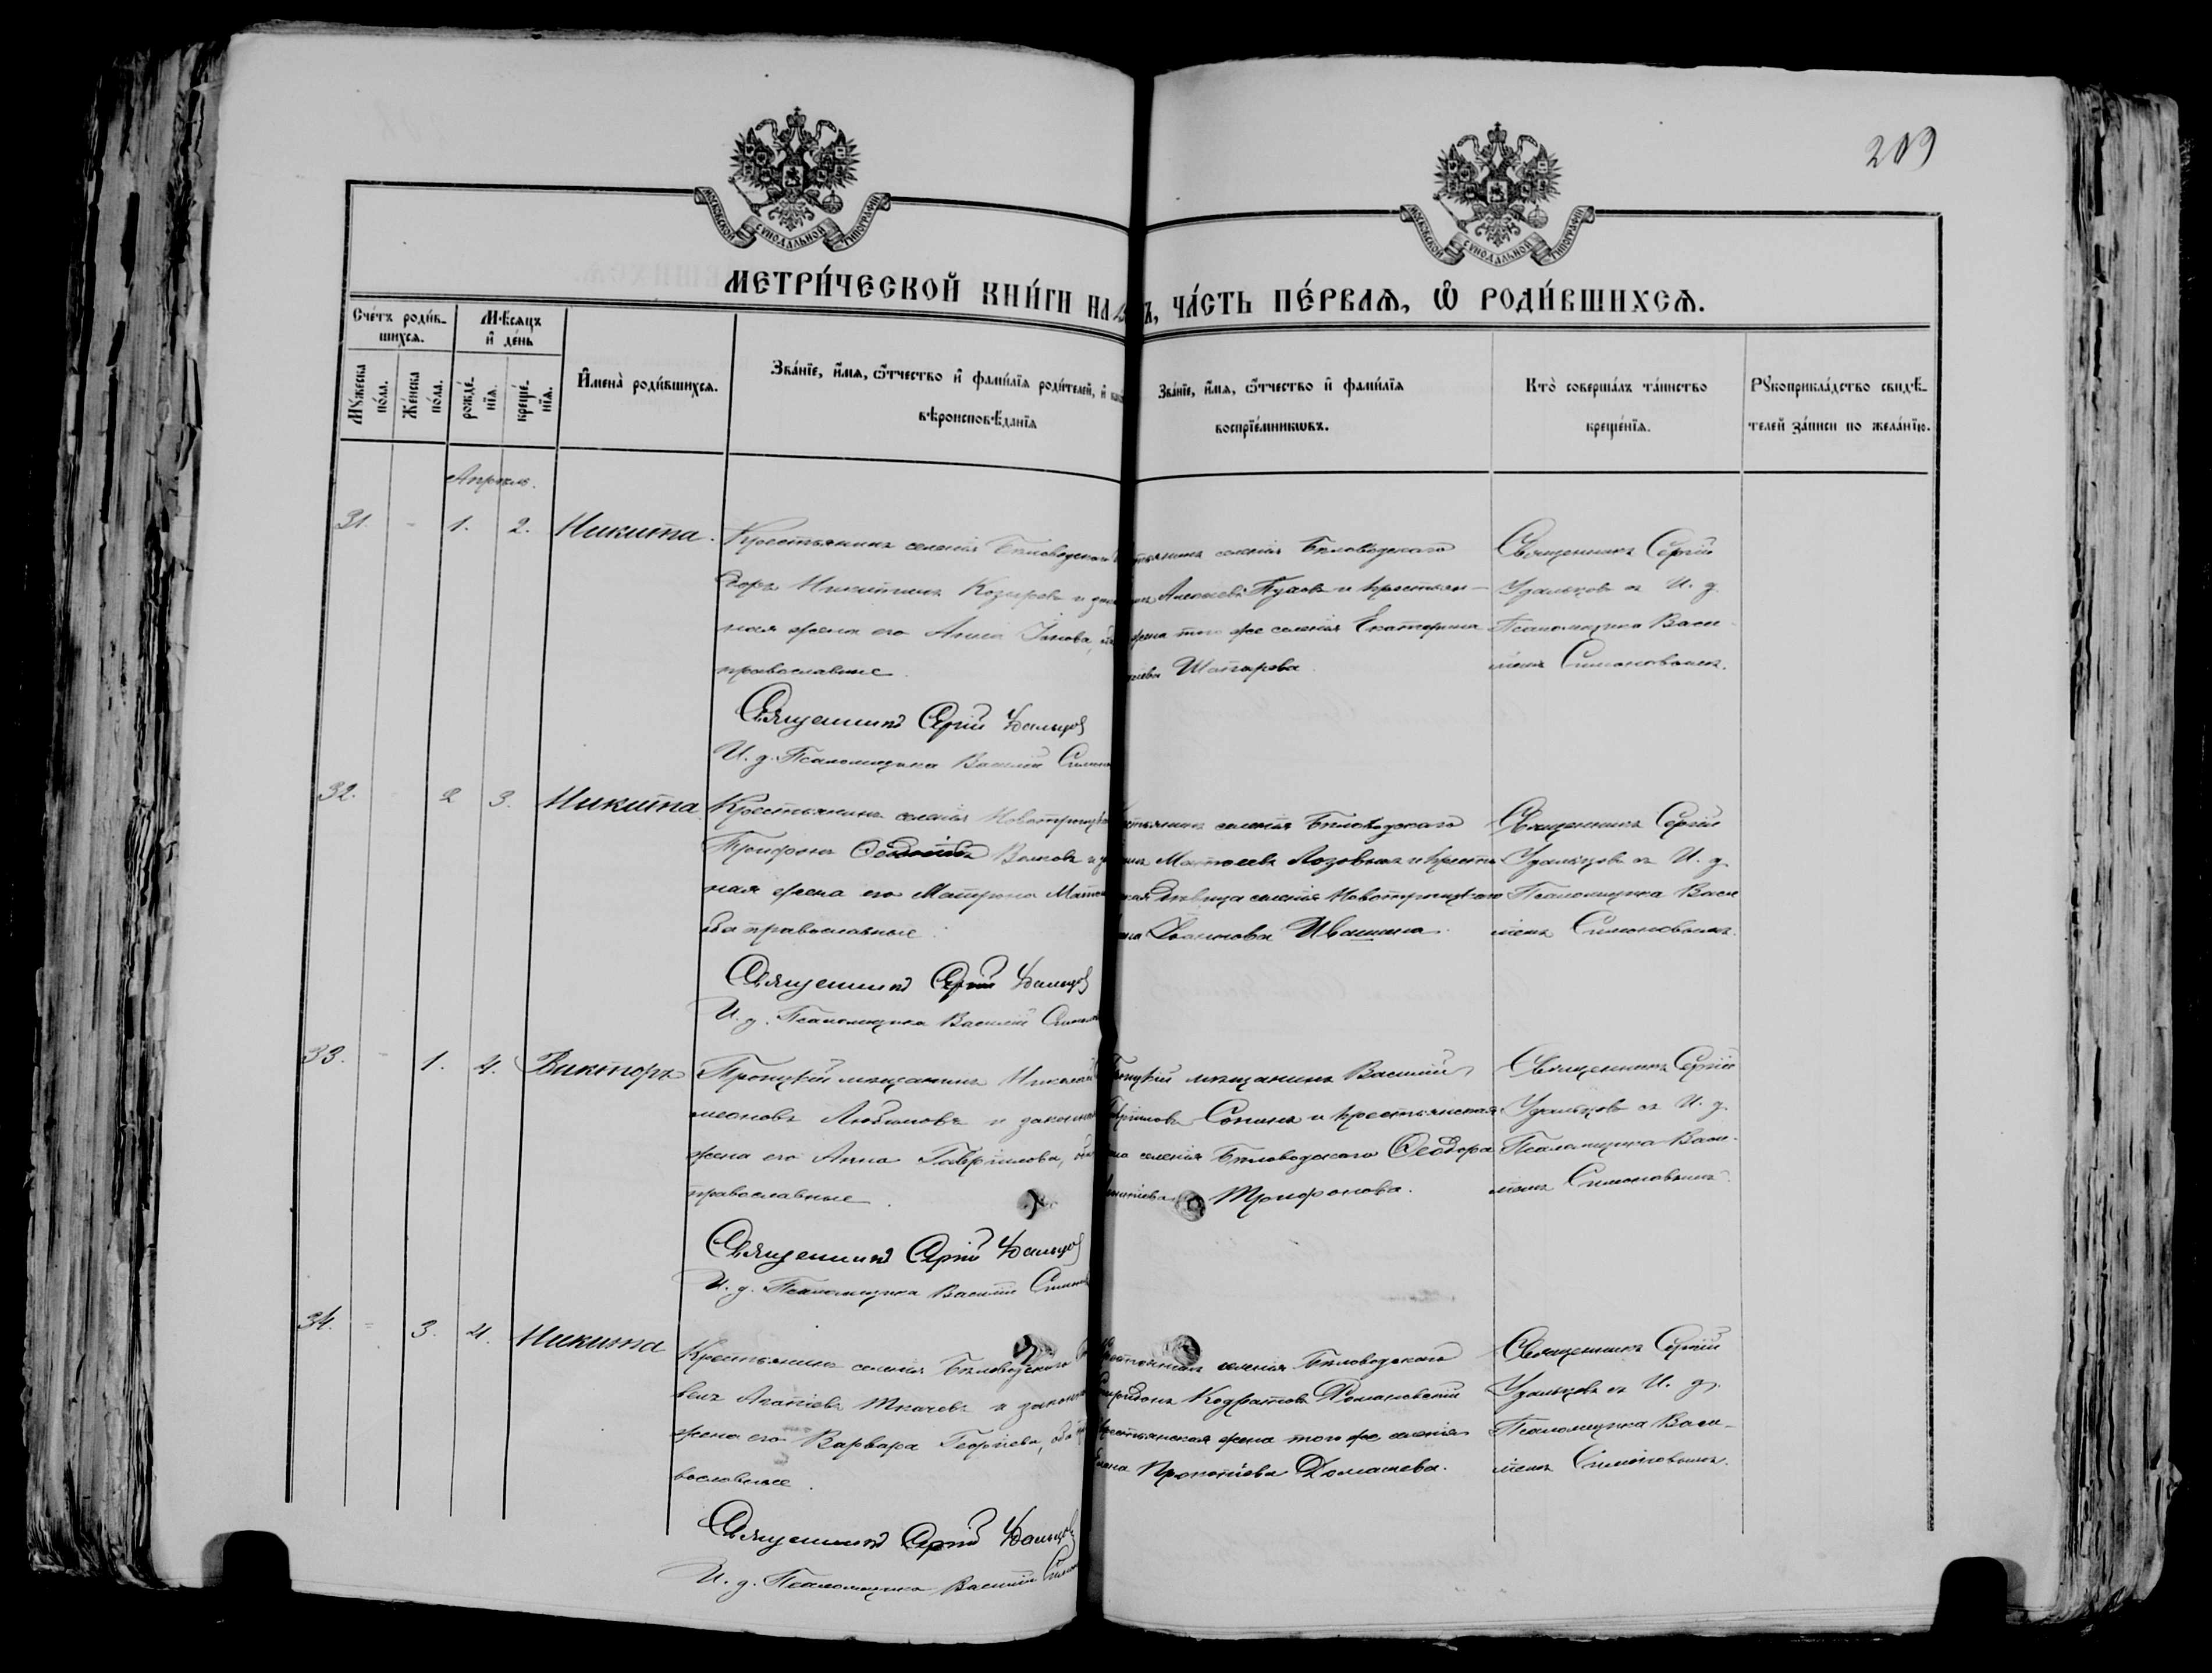 209
МОСКОВСКОЙ СѴНОДАЛЬНОЙ ТИПОГРАФІИ
МОСКОВСКОЙ СѴНОДАЛЬНОЙ ТИПОГРАФІИ
МЕТРИ́ЧЕСКОЙ КНИ́ГИ НА Ъ, ЧА́СТЬ ПЕ́РВАѦ, Ѡ҆ РОДИ́ВШИХСѦ.
Сче́тъ роди́в-
шихсѧ.
Мꙋ́жеска по́ла.
Же́нска по́ла.
Мѣ́сѧцъ
и҆ де́нь
рожде́-
нїѧ.
креще́-
нїѧ.
И҆мена̀ роди́вшихсѧ.
Зва́нїе, и҆́мѧ, ѻ҆́тчество и҆ фамі́лїѧ роди́телей, и҆
вѣроисповѣ́данїѧ
Зва́нїе, и҆́мѧ, ѻ҆́тчество и҆ фамі́лїѧ
воспрїе́мникωвъ.
Кто̀ соверша́лъ та́инство
креще́нїѧ.
Рꙋкоприкла́дство свидѣ́-
телей за́писи по жела́нїю.
Апрѣль.
31. - 1. 2. Никита.
Крестьянинъ селенія Бѣловодскаго
Егоръ Никитинъ Козыревъ и
ная жена его Анна
православные.
Священникъ Сергій Удальцов
И. д. Псаломщика Василій
селенія Бѣловодскаго
Пуховъ и крестьян-
жена того же селенія Екатерина
Шапарева.
Священникъ Сергій
Удальцовъ съ И. д.
Псаломщика Васи-
ліемъ Симоновымъ.
32. 2 3. Никита
Крестьянинъ селенія
Трифонъ Волковъ и
ная жена его Матрона
оба православные.
Священникъ Сергій Удальцов
И. д. Псаломщика Василій
селенія Бѣловодскаго
Лозовыхъ и крестья
дѣвица селенія Новотроицкаго
Ивашина.
Священникъ Сергій
Удальцовъ съ И. д.
Псаломщика Васи
ліемъ Симоновымъ.
33. - 1. 4. Викторъ
Троицкій мѣщанинъ
Любимовъ и
жена его Анна Гавріилова,
православные.
Священникъ Сергій Удальцов
И. д. Псаломщика Василій
мѣщанинъ Василій
Сонинъ и крестьянская
селенія Бѣловодскаго Ѳеодора
Трифонова.
Священникъ Сергій
Удальцовъ съ И. д.
Псаломщика Васи-
ліемъ Симоновымъ.
34. - 3. 4. Никита
Крестьянинъ селенія Бѣловодскаго
Агапіевъ Ткачевъ и
жена его Варвара Георгіева, оба
вославные.
Священникъ Сергій Удальцов
И. д. Псаломщика Василій
селенія Бѣловодскаго
Кодратовъ Романовскій
Крестьянская жена того же селенія
Прокопіева Домашева.
Священникъ Сергій
Удальцовъ съ И. д.
Псаломщика Васи-
ліемъ Симоновымъ.